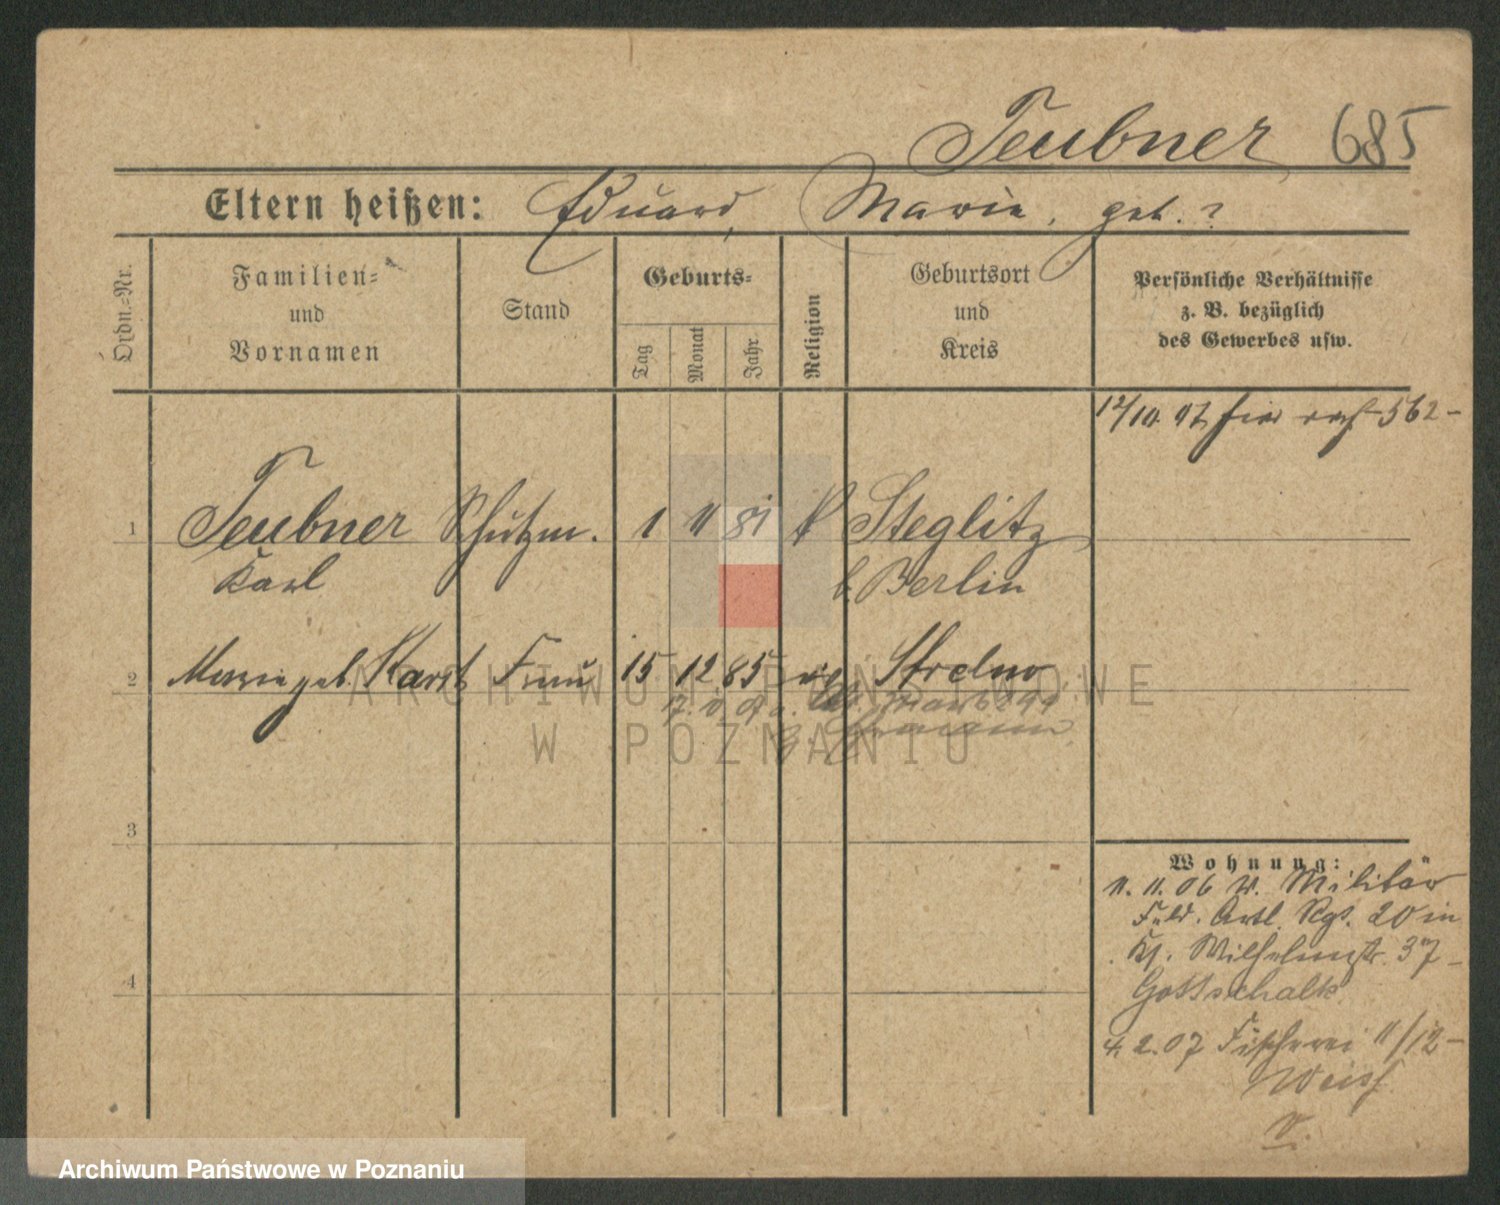 Teubner 685
Eltern heißen: Eduard, Marie, geb. ?
Ordn.-Nr.
Familien-
und
Vornamen
Stand
Geburts-
Tag
Monat
Jahr
Religion
Geburtsort
und
Kreis
Persönliche Verhältnisse
z. B. bezüglich
des Gewerbes usw.
12/10. 562-
1 Teubner Schutzm. 1 11 81 Steglitz
Karl b. Berlin
2 geb. Frau 15 12 85 Strelno
3
4
Wohnung:
11. 11. 06 v. Militär
Feld. Artl. Rgt. 20 in
Wilhelmstr. 37
Gottschalk
4. 2. 07 Fischerei 11/12-
Weiss
ARCHIWUM PAŃSTWOWE
W POZNANIU
Archiwum Państwowe w Poznaniu